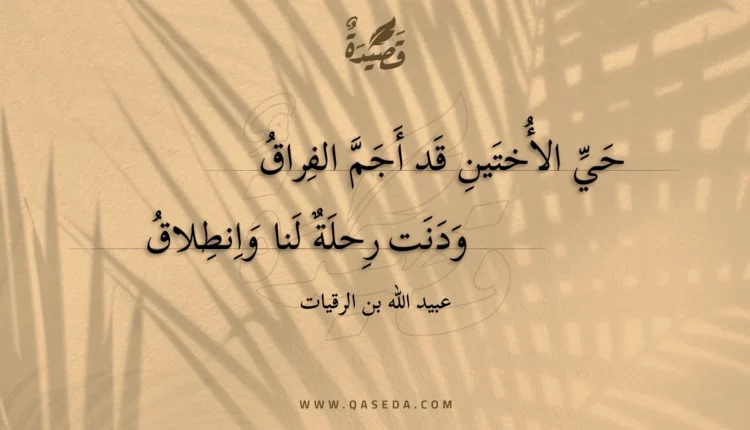 قَصِيْدَةٌ
حَيِّ الأُختَينِ قَد أَجَمَّ الفِراقُ
وَدَنَت رِحلَةٌ لَنا وَاِنطِلاقُ
عبيد الله بن الرقيات
WWW.QASEDA.COM